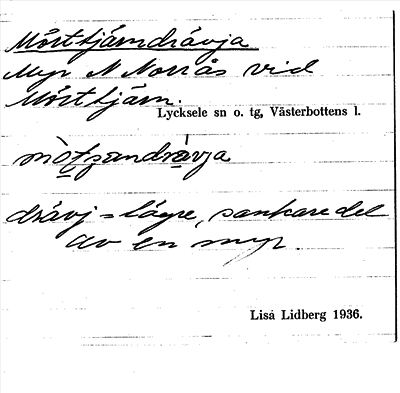 Mörttjärndrävja
Myr N Norrås vid
Mörttjärn.
Lycksele sn o. tg, Västerbottens l.
drävj = lägre, sankare del
av en myr.
Lisa Lidberg 1936.